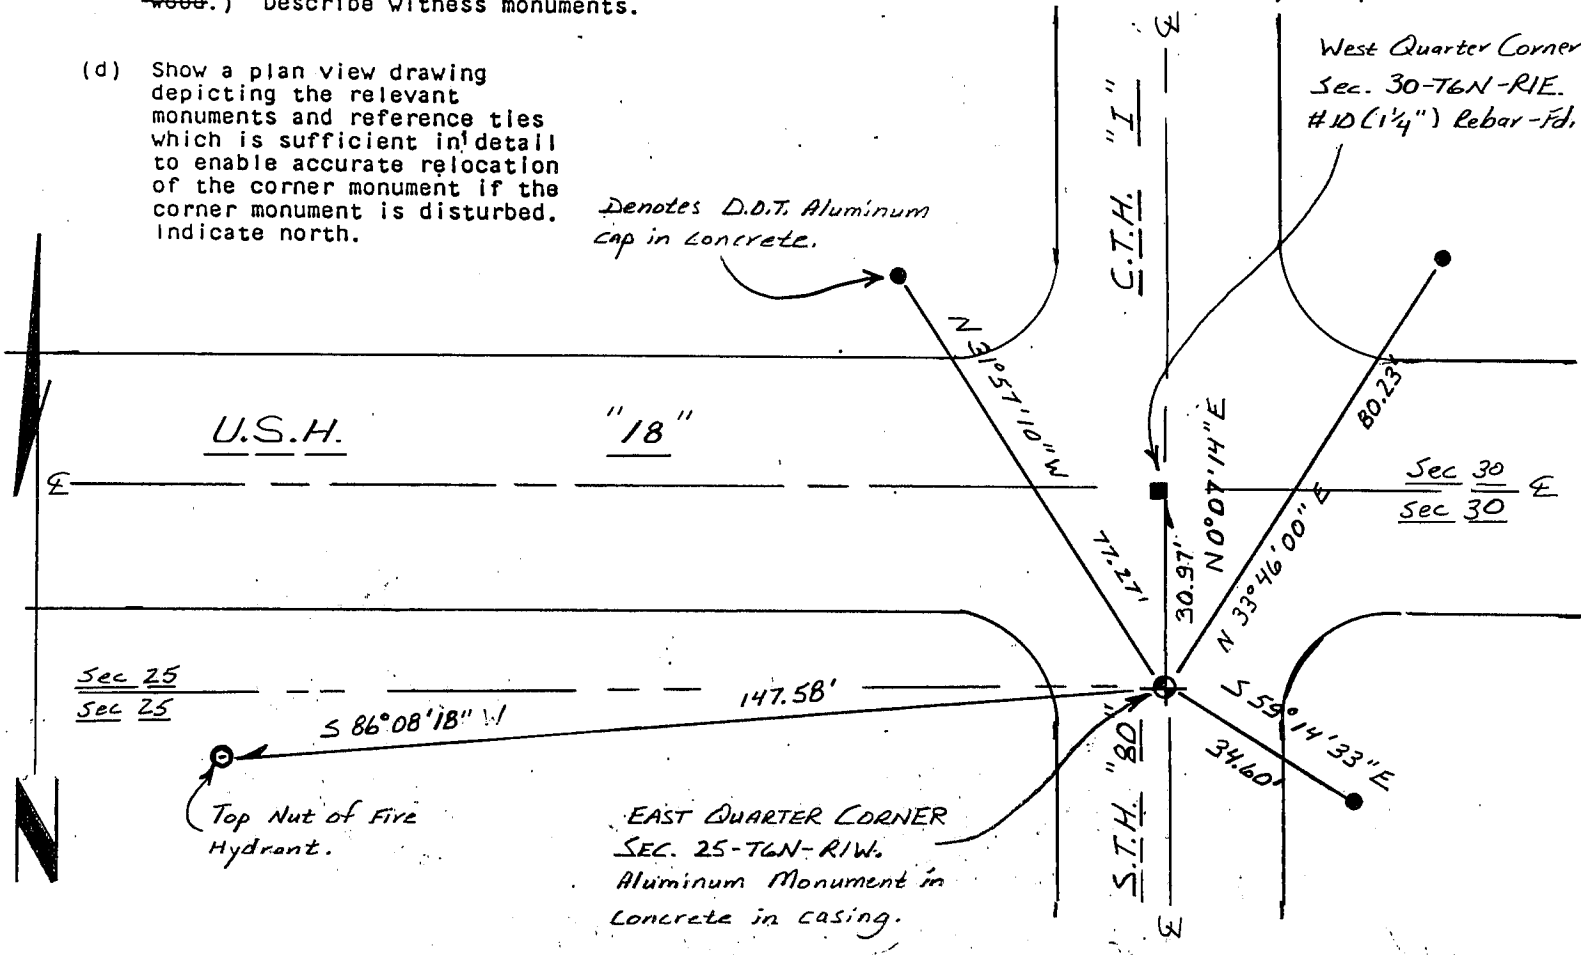 wood.) Describe witness monuments.
(d) Show a plan view drawing
depicting the relevant
monuments and reference ties
which is sufficient in detail
to enable accurate relocation
of the corner monument if the
corner monument is disturbed.
Indicate north.
Denotes D.O.T. Aluminum
Cap in Concrete.
West Quarter Corner
Sec. 30-T6N-R1E.
#10 (1¼") Rebar-Fd.
C.T.H. "I"
U.S.H. "18"
N 31°57'10" W
77.27'
N 0°07'14" E
30.97'
80.23'
N 33°46'00" E
Sec 30
Sec 30
Sec 25
Sec 25
S 86°08'18" W
147.58'
S 59°14'33" E
34.60'
Top Nut of Fire
Hydrant.
EAST QUARTER CORNER
SEC. 25-T6N-R1W.
Aluminum Monument in
Concrete in casing.
S.T.H. "80"
N